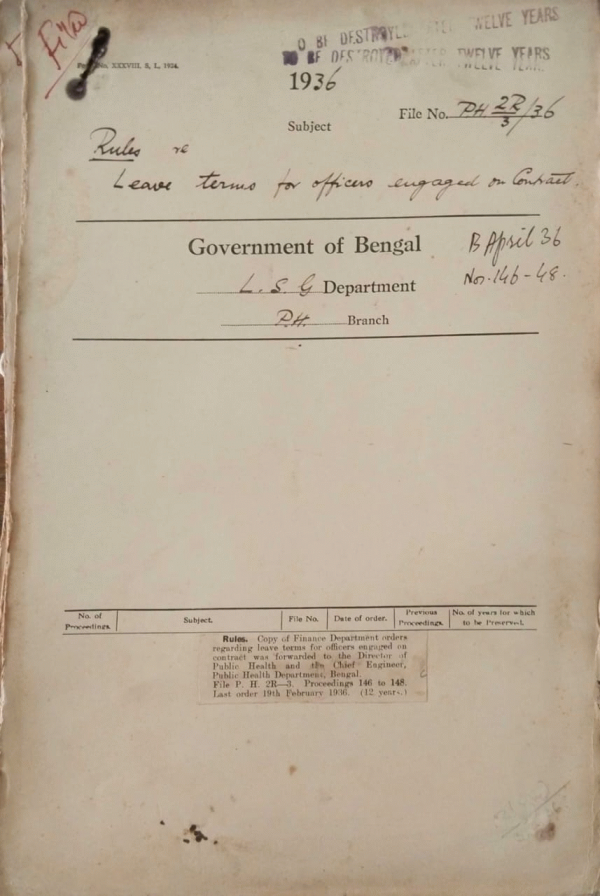 File
TO BE DESTROYED AFTER TWELVE YEARS
TO BE DESTROYED AFTER TWELVE YEARS
No. XXXVIII, S. L., 1934.
1936
File No. PH 2R/3/36
Subject
Rules re
Leave terms for officers engaged on Contract.
Government of Bengal
B April 36
Nos. 146-48.
L. S. G Department
P.H. Branch
No. of Proceedings. Subject. File No. Date of order. Previous Proceedings. No. of years for which to be Preserved.
Rules. Copy of Finance Department orders
regarding leave terms for officers engaged on
contract was forwarded to the Director of
Public Health and the Chief Engineer,
Public Health Department, Bengal.
File P. H. 2R—3. Proceedings 146 to 148.
Last order 19th February 1936. (12 years.)